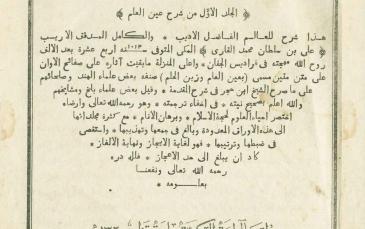 ﴿ الجلد الاوّل من شرح عين العلم ﴾
هذا شرح للعالم الفاضل الاديب * والكامل المدقق الاريب
﴿ على بن سلطان محمد القارى ﴾ المكى المتوفى سنة ١٠١٤ اربع عشرة بعد الالف
روح الله مهجته فى فراديس الجنان * واعلى المنزلة مابقيت آثاره على صفائح الاوان
على متن متين مسمى (بعين العلم وزين الحلم) صنفه بعض علماء الهند وصلحائهم
على ما صرح الشيخ ابن حجر فى شرح المقدمة * وقيل بعض علماء بلخ ومشايخهم
والله اعلم بصحيح نيته * فى اخفاء ترجمته * وهو رحمه الله تعالى وارضاه
اختصر احياء العلوم لحجة الاسلام * وبرهان الانام * مع كثرة مجلداتها
الى هذه الاوراق المعدودة وبالغ فى جمعها وتهذيبها * واستقصى
فى ضبطها وترتيبها * فهو لغاية الايجاز ونهاية الالغاز *
كاد ان يبلغ الى حد الاعجاز * فلله دره
رحمه الله تعالى ونفعنا
بعلومه *